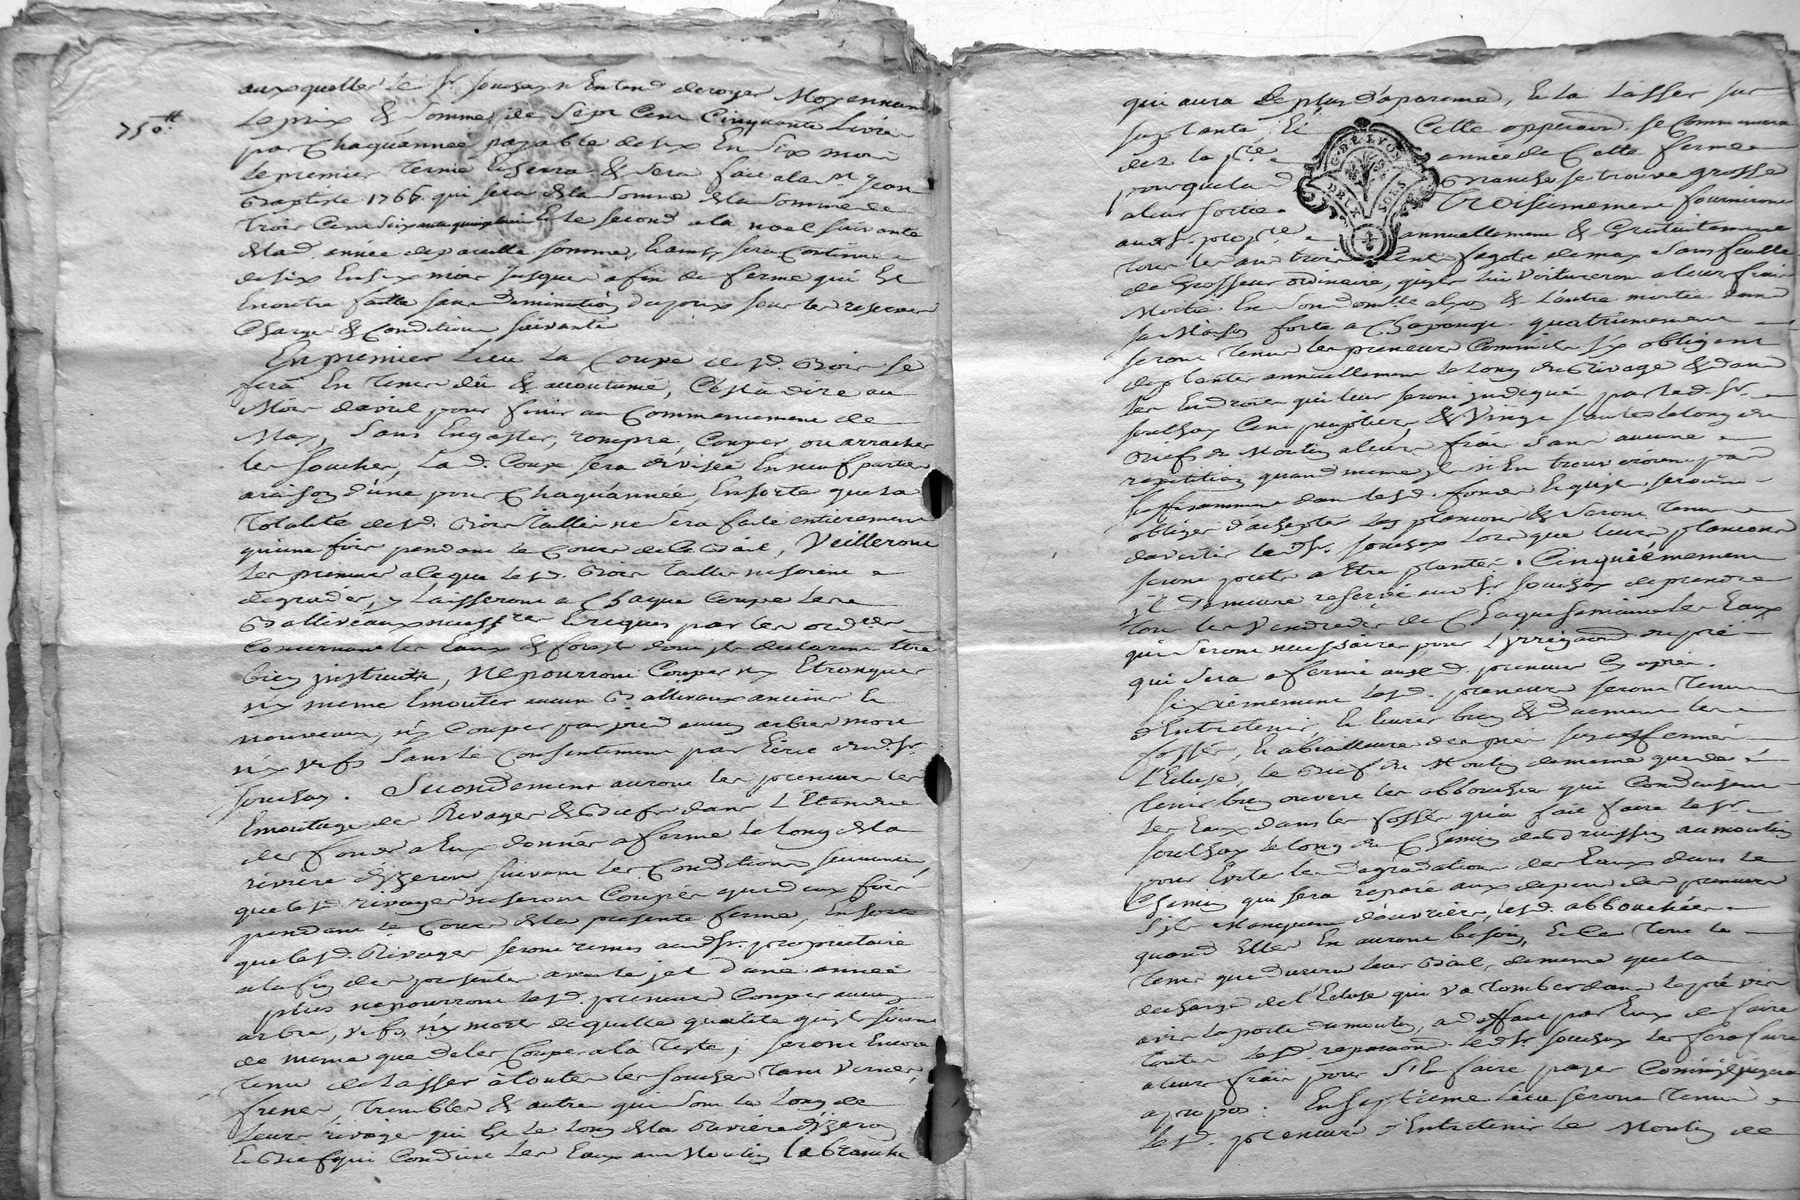 auxquelles le Sr. Souchay n'Entend deroger Moyennant
Le prix & Somme de Sept Cent Cinquante Livres
750.tt
par Chaqu'année payable de six En Six mois
Le premier terme Echerra & Sera fait a la St. Jean
Baptiste 1766. qui sera de la Somme de la Somme de
Trois Cent Soixante quinze Et le second a la noel suivante
de la d. année de pareille somme, Et ainsi sera Continué
de six En six mois jusques a fin de ferme qui Est
Encoutre faitte sans diminution du prix sous les reserves
Charges & Conditions suivantes
En premier Lieu La Coupe des d. Bois se
fera En tems dû & accoutumé, C'est a dire au
Mois d'avril pour finir au Commencement de
May, sans Engaster, rompre, Couper, ou arracher
les souches, La d. Coupe sera divisée En neuf parties
a raison d'une pour Chaqu'année, En sorte que la
Totalité des d. Bois taillis ne sera faite entierement
qu'une fois pendant le Cours de Ce Bail, Veilleront
Les preneurs a ce que les d. Bois taillis ne soient
degradés, y Laisseront a Chaque Coupe les
Balliveaux necess.res & requis par les ord.ces
Concernant les Eaux & forest dont ils declarent Etre
bien instruits, Ne pourront Couper ny Etronquer
ny meme Emonter aucun Balliveaux anciens &
nouveaux, n'y Couper par pied aucun arbre mort
n'y vifs sans le Consentement par Ecrit du d. Sr.
Souchay. Secondement auront les preneurs les
Emontage des Rivages & Biefs dans L'Etendue
des fonds a Eux donnés a ferme le long de la
riviere d'yzeron suivant les Conditions suivantes,
que les d. rivages ne seront Coupés que deux fois
pendant le Cours de la presente ferme, En sorte
que les d. Rivages seront remis au d. Sr. proprietaire
a la fin des presentes avec le jet d'une année
plus ne pourront les d. preneurs Couper aucun
arbre, vifs, n'y morts de quelle qualité qu'ils soient
de meme que de les Couper a la Teste, seront Encore
tenus de Laisser a toutes les souches tant Vernes,
frenes, trembles & autres qui sont le Long de
leurs rivages qui Est le long de la Riviere d'yzeron
Et Bief qui Conduit Les Eaux au Moulin La branche
qui aura Le plus d'aparence, Et La Laisser sur
la plante, Et Cette opperaon. se Commencera
dez la p.re année de Cette ferme
pour que la d. Branche se trouve grosse
a leur sortie. Troisiemement fourniront
au d. Sr. prop.re annuellement & Gratuitement
tous les ans trois Cent fagots de may sans feuille
de Grosseur ordinaire, qu'ils lui Voitureront a leur frais
Moitié En son domicille a Lyon & L'autre moitié dans
sa Maison forte a Chaponost. quatriemement
seront tenus les preneurs Comme ils s'y obligent
de planter annuellement Le long du Rivage & dans
Les Endroits qui leur seront indiqués par le d. Sr.
Souchay Cent peupliers & Vingt saules le long du
Bief du Moulin a leurs frais sans aucune
repetition quand meme ils n'En trouveroient pas
suffisamment dans les d. fonds Et qu'ils seroient
obligés d'achepter les plançons & seront tenus
d'avertir le d. Sr. Souchay Lors que leurs plançons
seront prets a Etre plantés. Cinquiemement
il demeure reservé au d. Sr. Souchay de prendre
tous les Vendredis de Chaque semaine les Eaux
qui seront necessaires pour L'irrigaon. du pré
qui sera affermé aux d. preneurs Cy après.
sixiemement les d. preneurs seront tenus
d'Entretenir, Et curer bien & duement les
fossés, Et abiaillures des prés sus affermés
L'Ecluse, Le Bief du Moulin de meme que de
tenir bien ouverts les abbouchées qui Conduisent
Les Eaux dans les fossés qu'a fait faire le d. Sr.
Souchay le long du Chemin du moulin
pour Eviter la degradation des Eaux dans le
Chemin qui sera reparé aux depens des preneurs
s'ils Manquent d'ouvrir les d. abbouchées
quand Elles En auront besoin, Et Ce tout le
tems que durera leur Bail, de meme que la
decharge de l'Ecluse qui Va tomber dans le pré vis
a vis la porte du moulin, a deffaut par Eux de faire
toutes les d. reparaons. le d. Sr. Souchay les fera faire
a leurs frais pour s'En faire payer Comme il jugera
a propos. En septieme Lieu seront tenus
les d. preneurs d'Entretenir Le Moulin de
G. DE LYON
DEUX SOLS